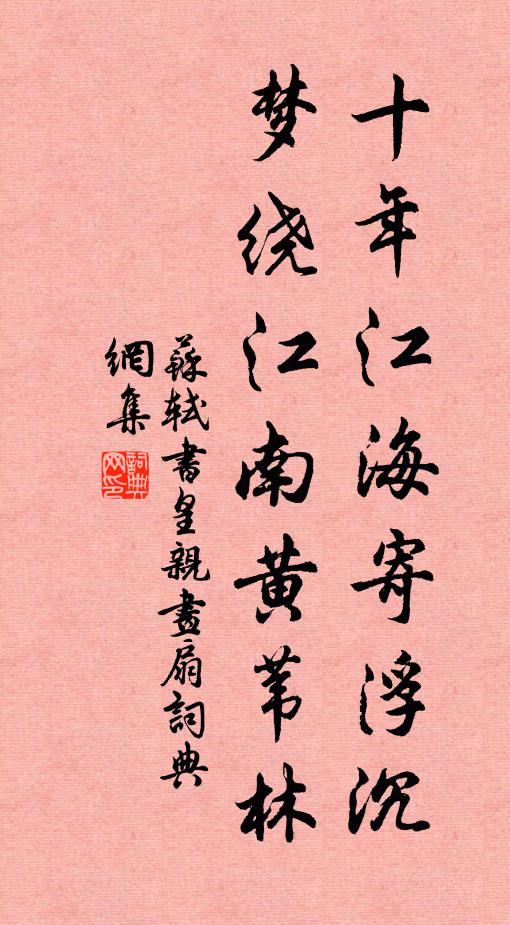 十年江海寄浮沉
梦绕江南黄苇林
蘇軾書皇親畫扇詞典
網集
詞典
网印